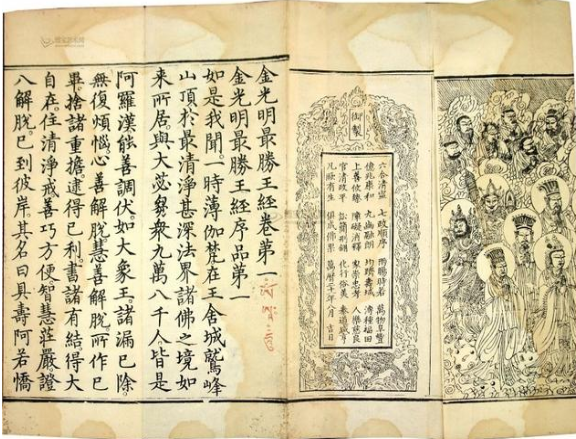 御製
六合清寧 七政順序 雨暘時若 萬物阜豐
億兆康和 九幽融朗 均躋壽域 溥種福田
上善攸臻 障礙消釋 家崇忠孝 人樂慈良
官清政平 訟簡刑措 化行俗美 泰道咸亨
凡厥有生 俱成佛果 萬曆 年八月 吉日
金光明最勝王經卷第一
金光明最勝王經序品第一
如是我聞。一時薄伽梵在王舍城鷲峰
山頂於最清淨甚深法界諸佛之境如
來所居。與大苾芻衆九萬八千人皆是
阿羅漢能善調伏。如大象王。諸漏已除。
無復煩惱心善解脫慧善解脫。所作已
畢。捨諸重擔。逮得己利。盡諸有結得大
自在住清淨戒善巧方便智慧莊嚴證
八解脫已到彼岸。其名曰具壽阿若憍